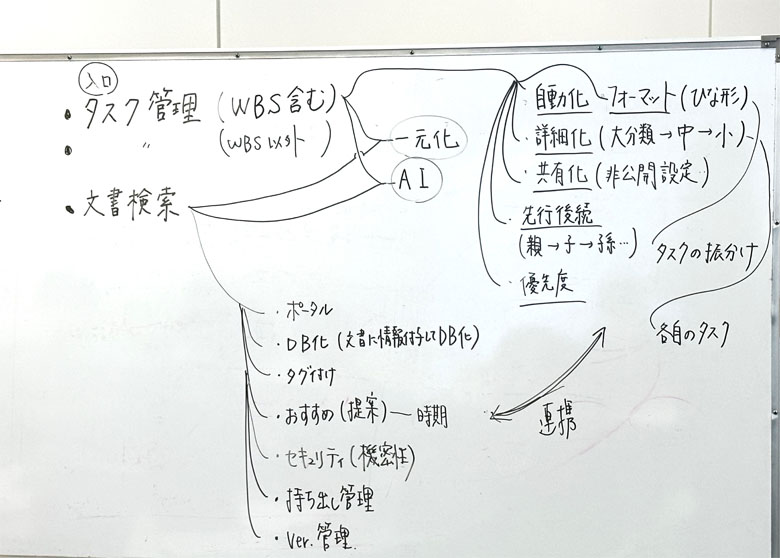 入口
・タスク管理(WBS含む)
・ 〃 (WBS以外)
・文書検索
一元化
AI
自動化 フォーマット(ひな形)
・詳細化(大分類→中→小)
・共有化(非公開設定)
・先行後続
(親→子→孫…)
・優先度
タスクの振分け
各自のタスク
・ポータル
・DB化(文書に情報付与してDB化)
・タグ付け
・おすすめ(提案)—時期
連携
・セキュリティ(機密性)
・持ち出し管理
・Ver.管理